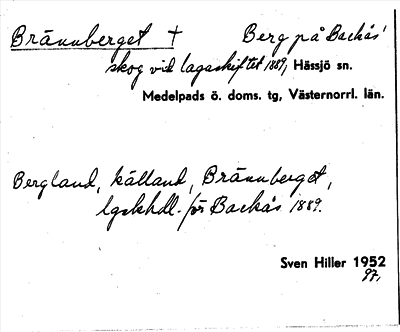 Brännberget † Berg på Backås'
skog vid lagaskiftet 1889, Hässjö sn.
Medelpads ö. doms. tg, Västernorrl. län.
Bergland, källand, Brännberget,
lgskhdl. för Backås 1889.
Sven Hiller 1952